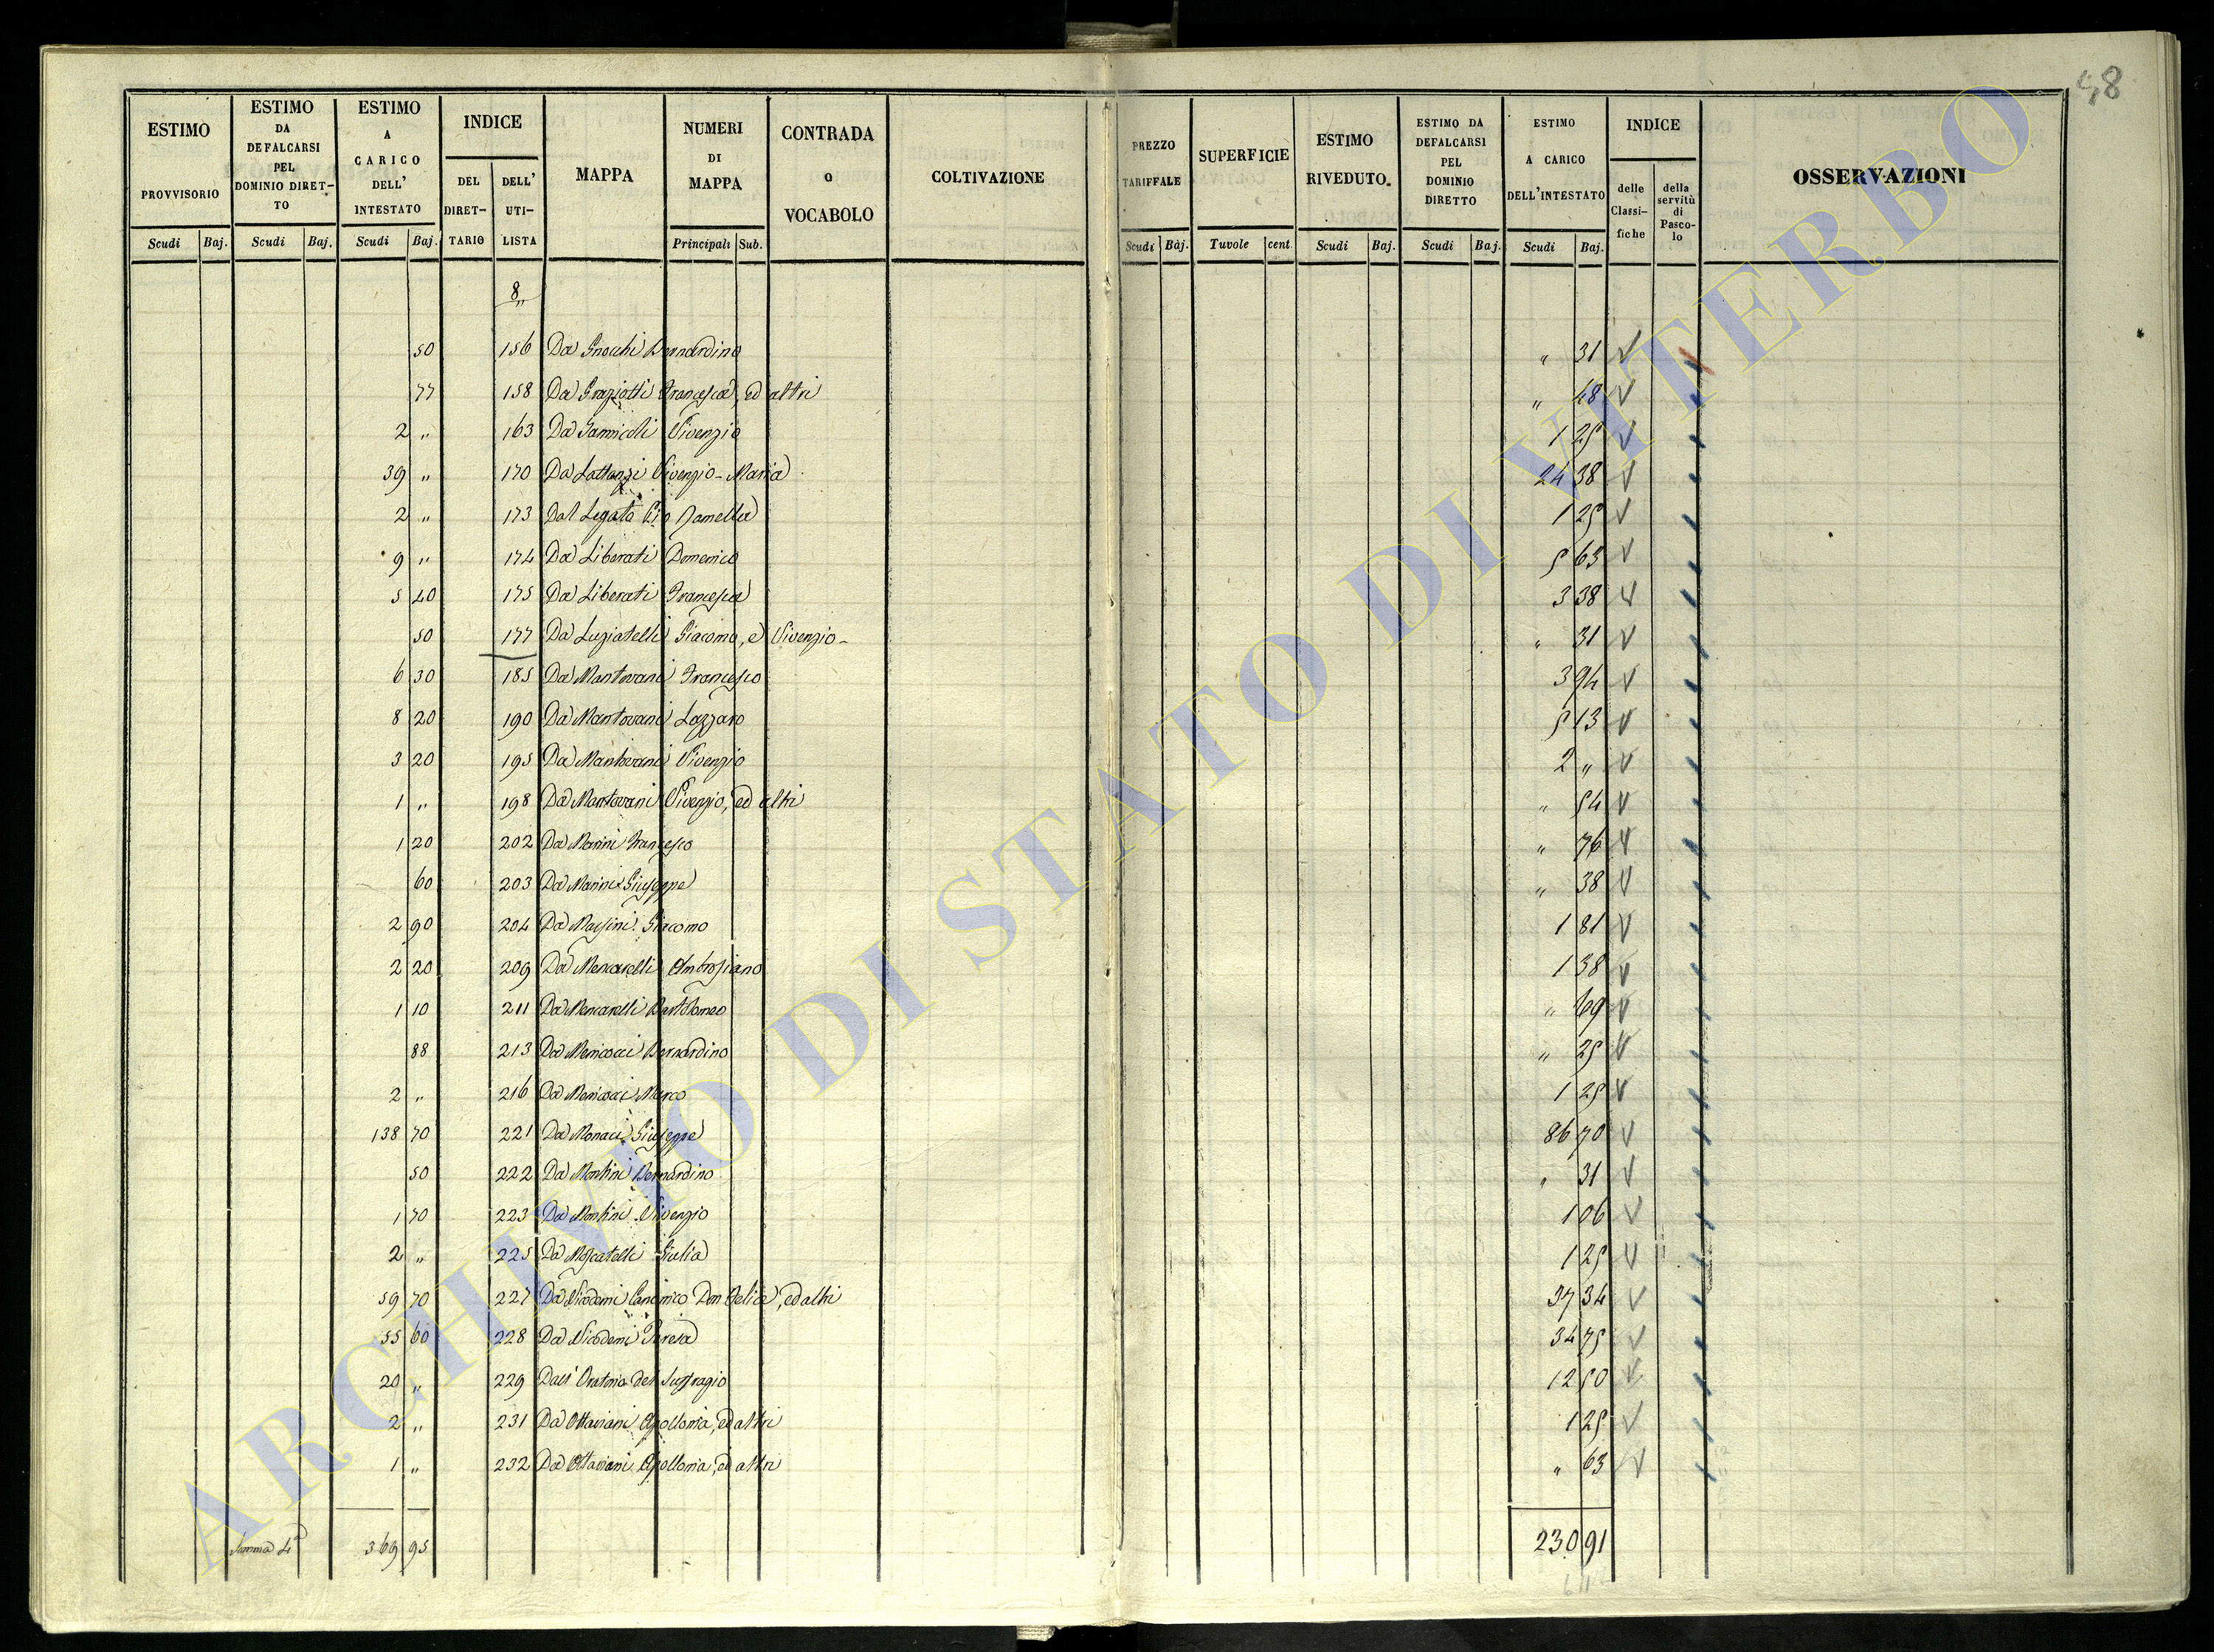 48
ESTIMO PROVVISORIO Scudi Baj. ESTIMO DA DEFALCARSI PEL DOMINIO DIRET-TO Scudi Baj. ESTIMO A CARICO DELL' INTESTATO Scudi Baj. INDICE DEL DIRET-TARIO DELL' UTI-LISTA MAPPA NUMERI DI MAPPA Principali Sub. CONTRADA o VOCABOLO COLTIVAZIONE PREZZO TARIFFALE Scudi Baj. SUPERFICIE Tavole cent. ESTIMO RIVEDUTO. Scudi Baj. ESTIMO DA DEFALCARSI PEL DOMINIO DIRETTO Scudi Baj. ESTIMO A CARICO DELL'INTESTATO Scudi Baj. INDICE delle Classi-fiche della servitù di Pasco-lo OSSERVAZIONI
8,,
50 156 Da Gnochi Bernardino ,, 31
77 158 Da Graziotti Francesca, ed altri ,, 48
2 ,, 163 Da Jannicoli Vivenzio 1 25
39 ,, 170 Da Lattanzi Vivenzio-Maria 24 38
2 ,, 173 Dal Legato Pio Jamella 1 25
9 ,, 174 Da Liberati Domenico 5 63
5 40 175 Da Liberati Francesca 3 38
50 177 Da Luziatelli Giacomo, e Vivenzio- ,, 31
6 30 185 Da Mantovani Francesco 3 94
8 20 190 Da Mantovani Lazzaro 5 13
3 20 195 Da Mantovani Vivenzio 2 ,,
1 ,, 198 Da Mantovani Vivenzio, ed altri ,, 54
1 20 202 Da Marini Francesco ,, 76
60 203 Da Marini Giuseppe ,, 38
2 90 204 Da Massini Giacomo 1 81
2 20 209 Da Mencarelli Ambrosiano 1 38
1 10 211 Da Mencarelli Bartolomeo ,, 69
88 213 Da Menicacci Bernardino ,, 25
2 ,, 216 Da Menicacci Marco 1 25
138 70 221 Da Monaci Giuseppe 86 70
50 222 Da Montini Bernardino ,, 31
1 70 223 Da Montini Vivenzio 1 06
2 ,, 225 Da Moscatelli Giulia 1 25
59 70 227 Da Nicodemi Canonico Don Felice, ed altri 37 34
55 60 228 Da Nicodemi Teresa 34 75
20 ,, 229 Dall' Oratorio del Suffragio 12 50
2 ,, 231 Da Ottaviani Apollonia, ed altri 1 25
1 ,, 232 Da Ottaviani Apollonia, ed altri ,, 63
Somma 369 95 230 91
ARCHIVIO DI STATO DI VITERBO